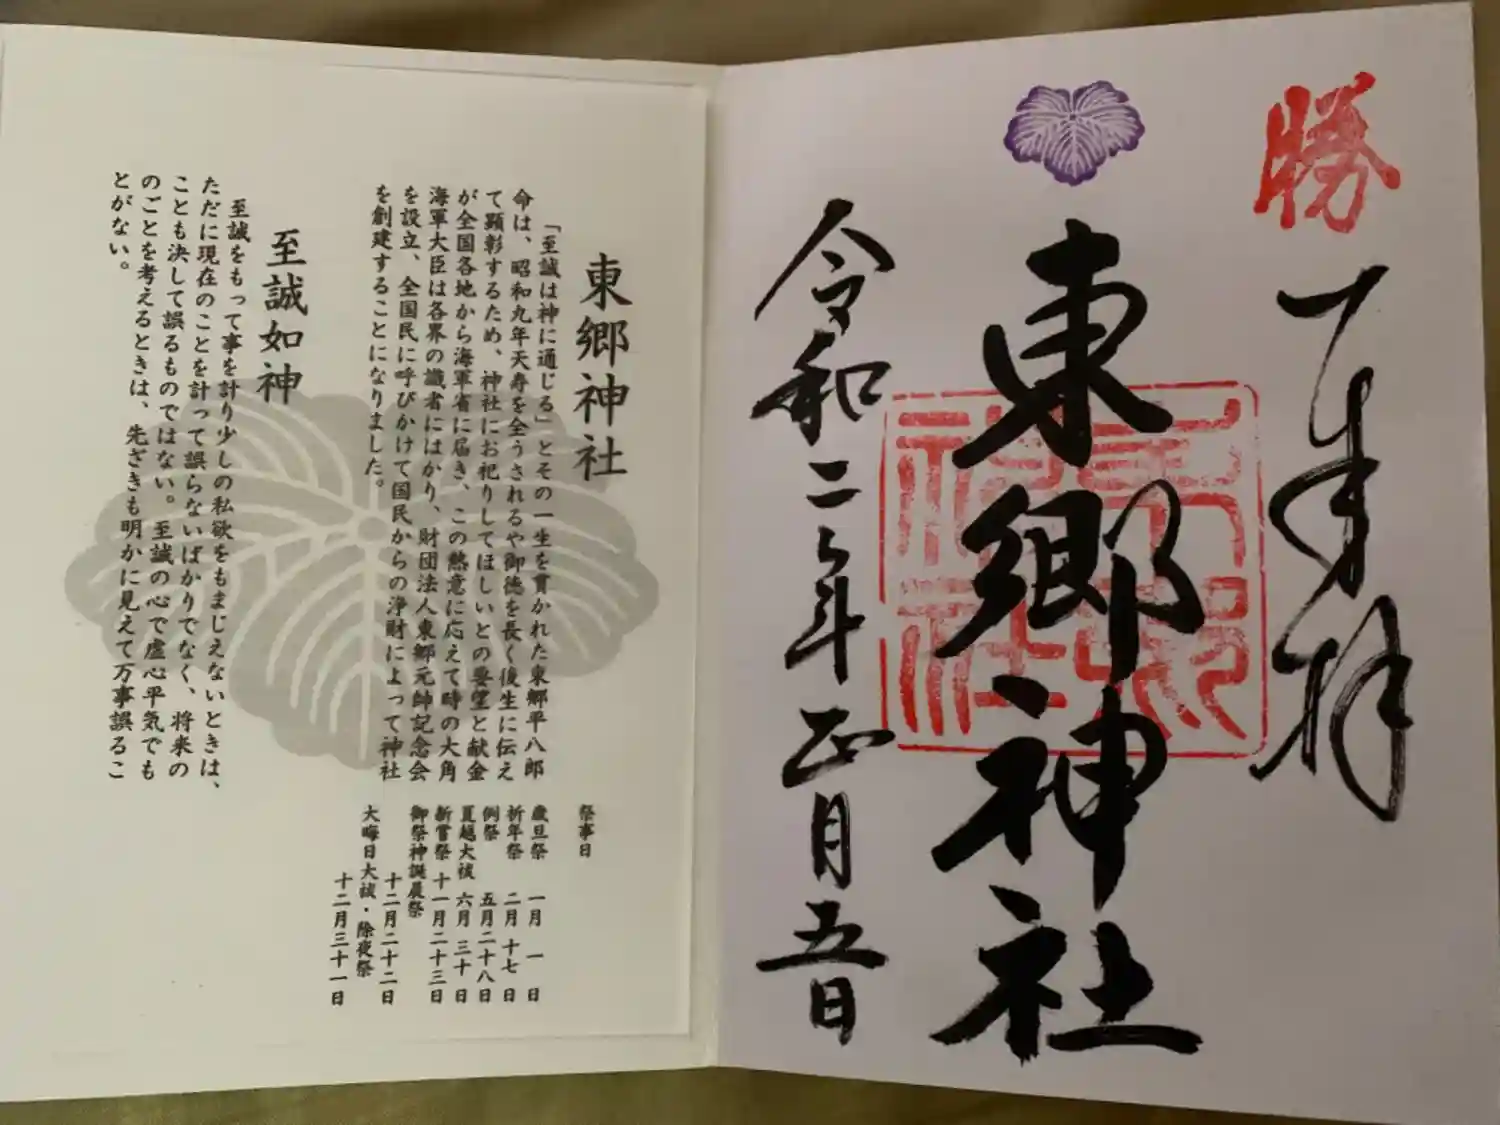 勝
奉拝
東郷神社
令和二年正月五日
東郷神社
「至誠は神に通じる」とその一生を貫かれた東郷平八郎
命は、昭和九年天寿を全うされるや御徳を長く後生に伝え
て顕彰するため、神社にお祀りしてほしいとの要望と献金
が全国各地から海軍省に届き、この熱意に応えて時の大角
海軍大臣は各界の識者にはかり、財団法人東郷元帥記念会
を設立、全国民に呼びかけて国民からの浄財によって神社
を創建することになりました。
祭事日
歳旦祭 一月 一日
祈年祭 二月 十七日
例祭 五月二十八日
夏越大祓 六月 三十日
新嘗祭 十一月二十三日
御祭神誕辰祭
十二月二十二日
大晦日大祓・除夜祭
十二月三十一日
至誠如神
至誠をもって事を計り少しの私欲をもまじえないときは、
ただに現在のことを計って誤らないばかりでなく、将来の
ことも決して誤るものではない。至誠の心で虚心平気でも
のごとを考えるときは、先ざきも明かに見えて万事誤るこ
とがない。